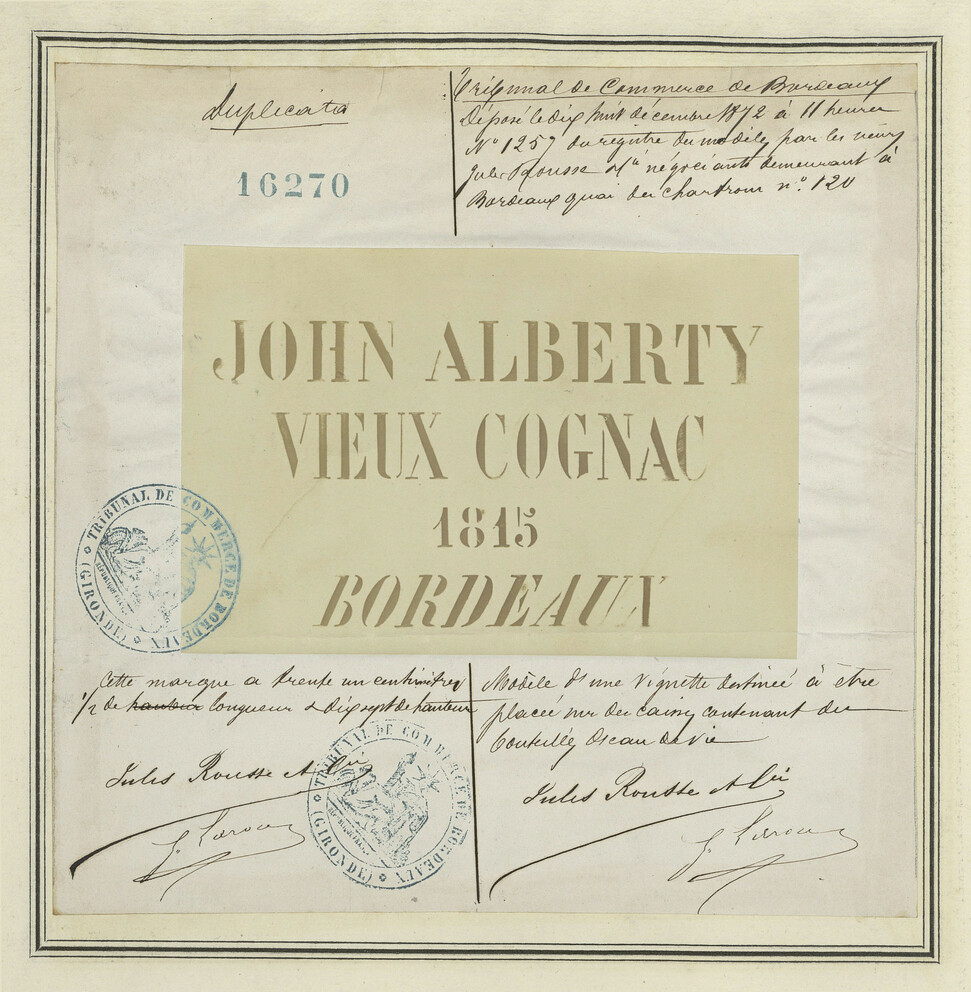 Duplicata
16270
Tribunal de Commerce de Bordeaux
Déposé le dix huit décembre 1872 à 11 heures
N° 1257 du registre du modèle, par les
Jules Rousse & Cie négociants demeurant à
Bordeaux quai des chartrons n°. 120
JOHN ALBERTY
VIEUX COGNAC
1815
BORDEAUX
TRIBUNAL DE COMMERCE DE BORDEAUX
(GIRONDE)
Cette marque a trente un centimètres
1/2 de hauteur longueur & dix sept de hauteur
Jules Rousse & Cie
Modèle d'une vignette destinée à être
placée sur des caisses contenant des
bouteilles d'eau de vie
Jules Rousse & Cie
TRIBUNAL DE COMMERCE DE BORDEAUX
(GIRONDE)